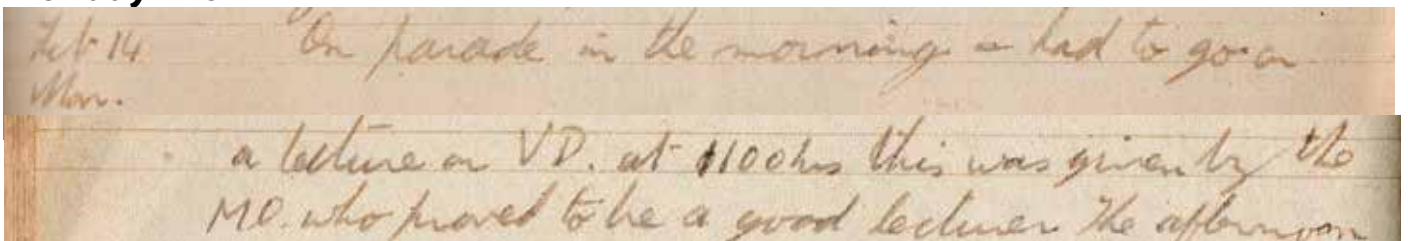 Feb 14 On parade in the morning - had to go on
Mon.
a lecture on VD. at 1100hrs this was given by the
M.O. who proved to be a good lecturer. The afternoon